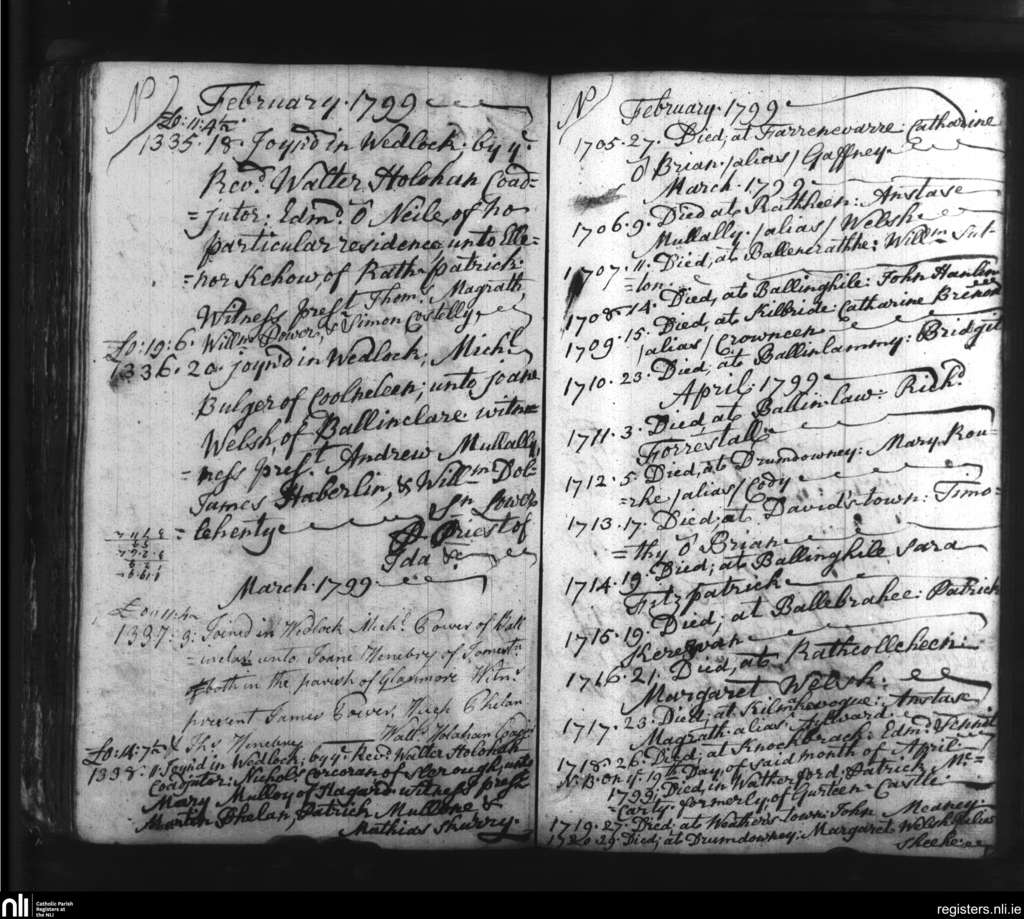 No
February. 1799
£0: 11: 4½
1335. 18. Joyn'd in Wedlock. by ye.
Revd. Walter Holohan Coad=
=jutor: Edmd. O Neile, of no
particular residence unto Elle=
=nor Kehow, of Rath-patrick:
Witness prest. Thoms. Magrath,
Willm. Power, & Simon Costelly,
£0: 19: 6.
1336. 20. joyn'd in Wedlock, Michl.
Bulger of Coolneleen; unto Joane
Welsh, of Ballinclare witn=
=ness prest. Andrew Mullally,
James Haberlin, & Willm. Dol=
=lehenty
Priest of
Ida &c
March. 1799
£0 11: 4½
1337: 3: Joined in Wedlock Michl. Power of
unto Joane Henebry of
both in the parish of Glanmore Witns.
present James Power, Hugh Phelan
& Thos. Henebry
Walt. Holahan Coadr.
1338: 11. Joyn'd in Wedlock; by ye. Revd. Walter Holohan
Coadjutor: Nichols Corcoran of Slorough, unto
Mary Mulloy of witness prest.
Martin Phelan, Patrick Mullone &
Mathias Skurry.
No
February. 1799
1705. 27. Died, at Farrenevarre: Catharine
O Brian /alias/ Gaffney.
March. 1799
1706. 9. Died at Rathkeen: Anstase
Mullally. /alias/ Welsh
1707. 11. Died, at Ballenerathhe: Willm. Sut=
=ton.
1708. 14. Died, at Ballinghile: John Hanlon
1709. 15. Died, at Kilbride: Catharine Brenon
/alias/ Crowneen
1710. 23. Died; at Ballinlammy: Bridgit
April. 1799
1711. 3. Died, at Ballinlaw: Richd.
Forrestall
1712. 5. Died, at Drumdowney: Mary Rou=
=rke /alias/ Cody
1713. 17. Died; at David's-town: Timo=
=thy O Brian
1714. 19. Died; at Ballinghile Sara
Fitzpatrick
1715. 19. Died; at Ballebrahee: Patrick
Kerewan
1716. 21. Died, at Rathcollcheen:
Margaret Welsh:
1717. 23. Died; at Anstase
Magrath alias Aylward
1718. 26. Died; at Knockbrack: Edmd.
N:B: On ye. 19th. Day of said month of April
1799. Died, in Watherford: Patrick Mc=
=Carty formerly of Gurteen-Castle
1719. 27. Died; at Weathers town: John Meaney
1720. 29. Died; at Drumdowney: Margaret Welsh alias
Skeehe:
nli
Catholic Parish
Registers at
the NLI
registers.nli.ie